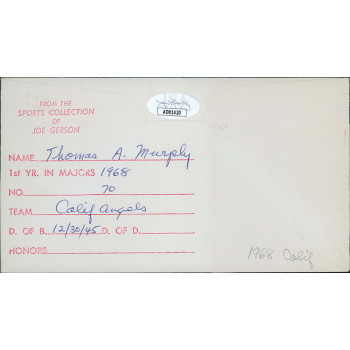 FROM THE
SPORTS COLLECTION
OF
JOE GERSON
NAME Thomas A. Murphy
1st YR. IN MAJORS 1968
NO. 70
TEAM Calif Angels
D. OF B. 12/30/45 D. OF D.
HONORS
JSA
AD05630
1968 Calif